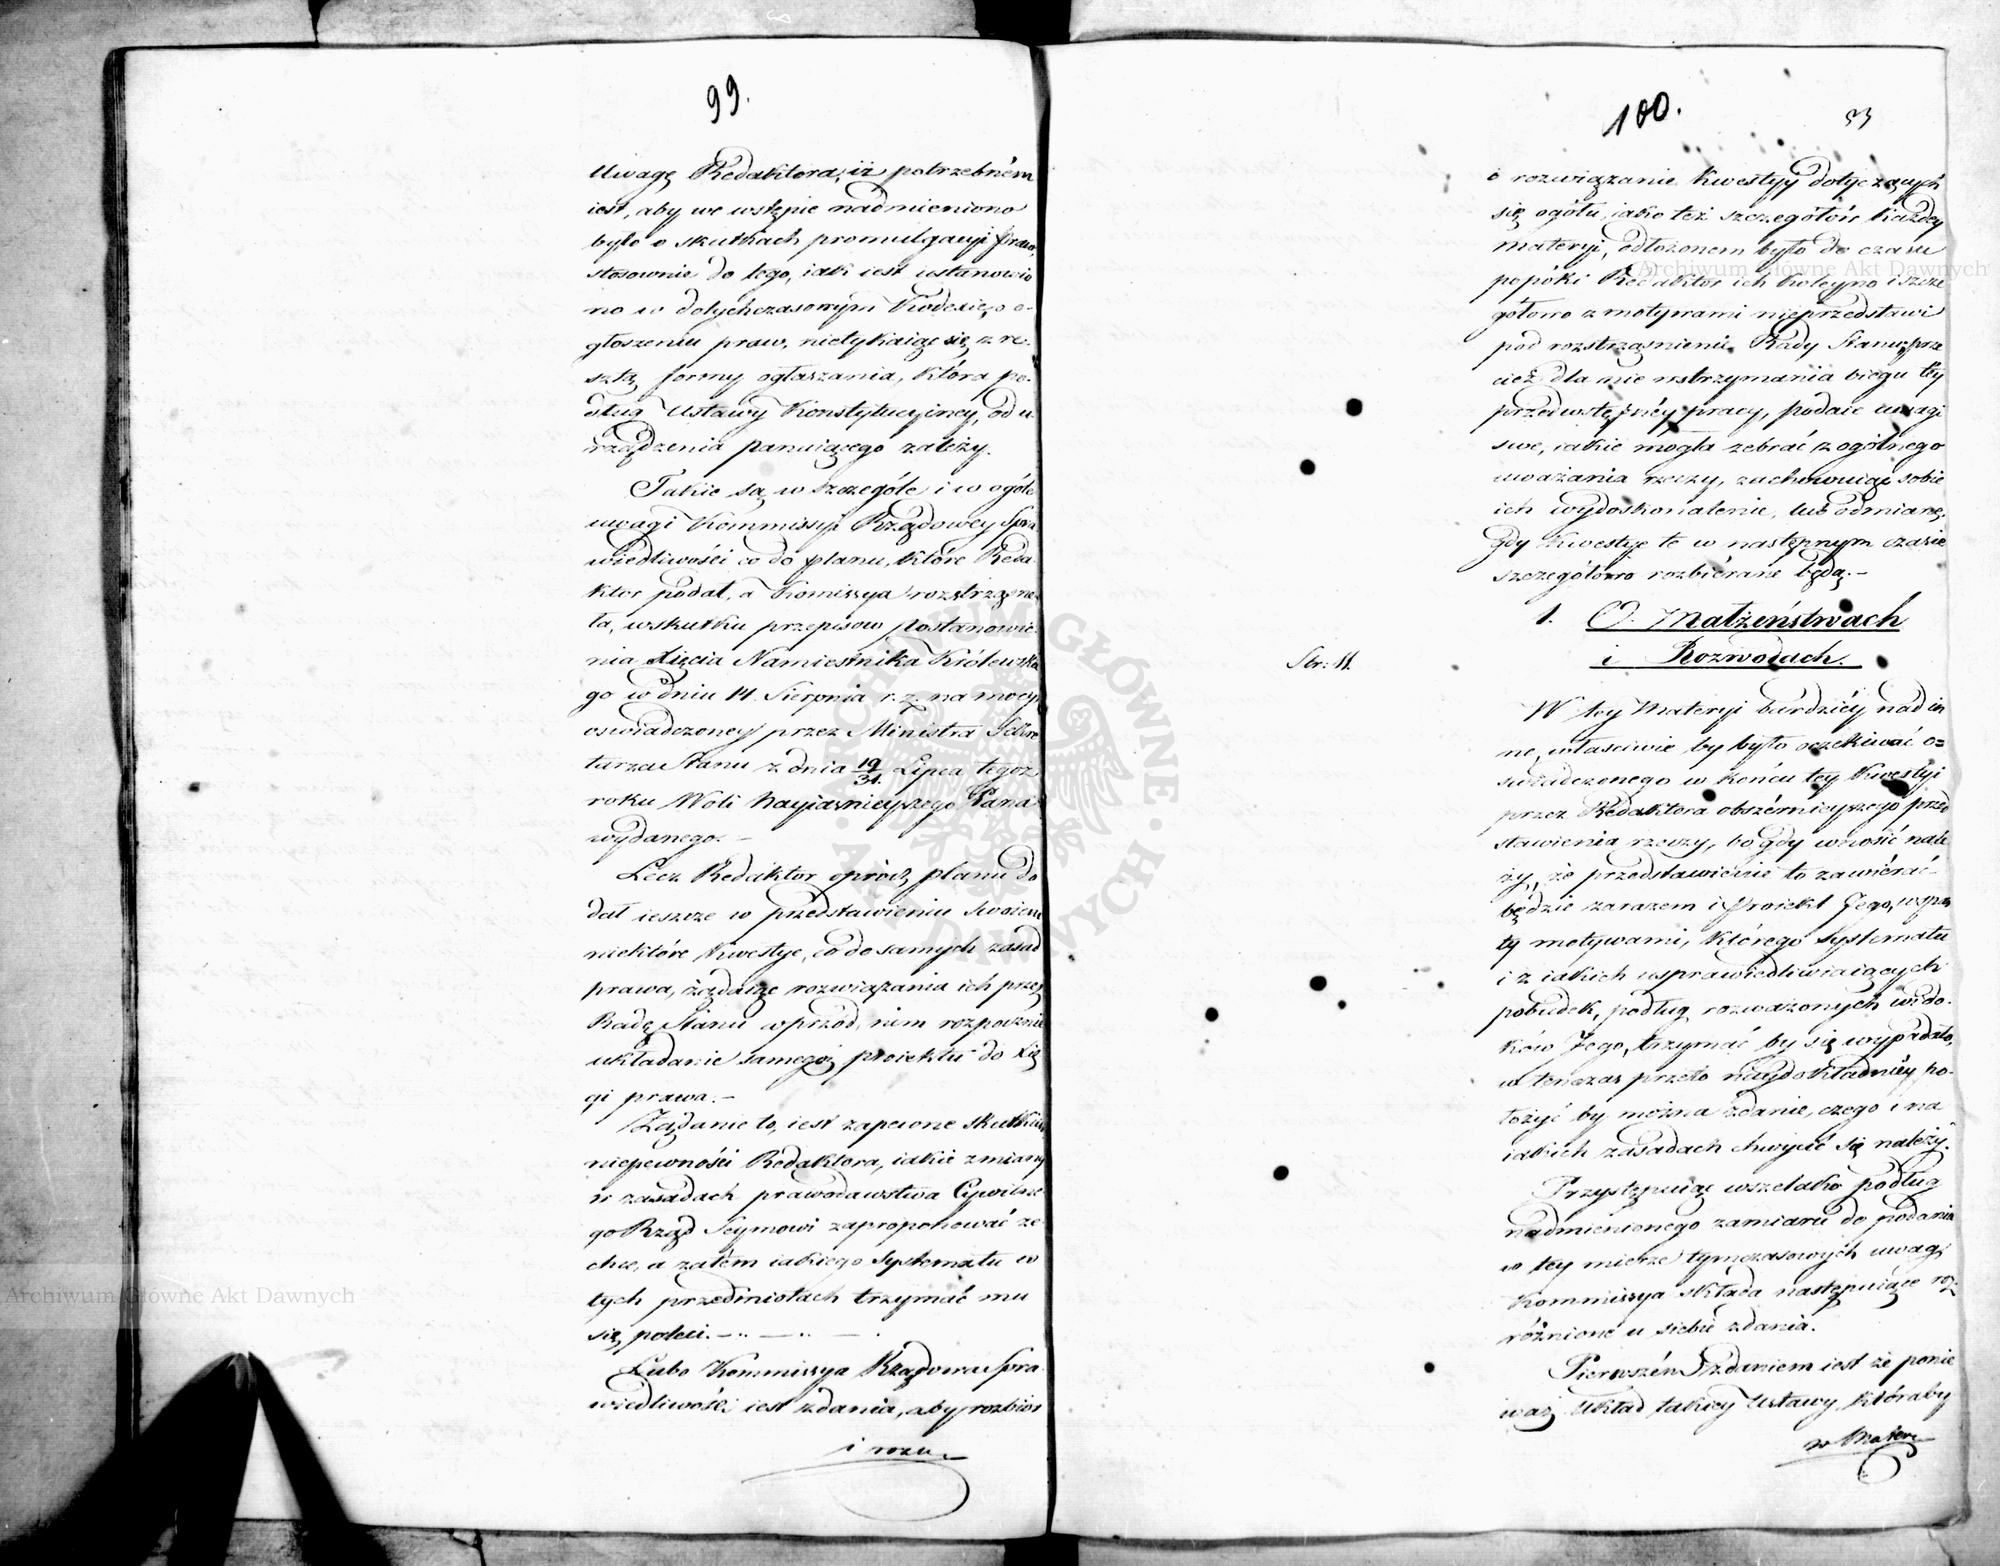 99.
Uwagę Redaktora, iż potrzebném
iest, aby we wstępie nadmieniono
było o skutkach promulgacyi praw,
stosownie do tego, iak iest ustanowio
no w dotychczasowym Kodexie, o o-
głoszeniu praw, nietykaiąc się z re-
sztą formy ogłaszania, która po-
dług Ustawy Konstytucyiney, od u
rządzenia panuiącego zależy.
Takie są w szczególe i w ogóle
uwagi Kommissyi Rządowey Spra
wiedliwości co do planu, które Reda
ktor podał, a Komissya rozstrząsnę
ła, wskutku przepisow postanowie
nia Xięcia Namiestnika Królewskie
go w dniu 14 Sierpnia r. z. na mocy
oświadczoney przez Ministra Sekre
tarza Stanu z dnia 19/31. Lipca tegoż
roku Woli Nayiaśnieyszego Pana
wydanego. –
Lecz Redaktor oprócz planu do
dał ieszcze w przedstawieniu swoiem
niektóre kwestye, co do samych zasad
prawa, żądaiąc rozwiązania ich przez
Radę Stanu wprzód, nim rozpocznie
układanie samegoż proiektu do Xię
gi prawa. –
Żądanie to, iest zapewne skutkiem
niepewności Redaktora, iakie zmiany
w zasadach prawodawstwa Cywilne
go Rząd Seymowi zaproponować ze
chce, a zatém iakiego systematu w
tych przedmiotach trzymać mu
się poleci. –
Lubo Kommissya Rządowa Spra
wiedliwości iest zdania, aby rozbior
i rozw
100.
i rozwiązanie kwestyy dotyczących
się ogółu, iako też szczegółów każdey
materyi, odłożonem było do czasu
popóki Redaktor ich koleyno i szcze
gółowo z motywami nieprzedstawi
pod rozstrząśnienie Rady Stanu, prze
cież dla nie wstrzymania biegu tey
przedwstępnéy pracy, podaie uwagi
swe, iakie mogła zebrać z ogólnego
uważania rzeczy, zachowuiąc sobie
ich wydoskonalenie, lub odmianę,
gdy kwestye te w następnym czasie
szczegółowo rozbiérane będą. –
1. O Małżeństwach
i Rozwodach.
Str: 11.
W tey materyi bardziéy nad in
ne, właściwie by było oczekiwać o=
świadczonego w końcu tey kwestyi
przez Redaktora obszérnieyszego przed
stawienia rzeczy, bo gdy wnosić nale
ży, że przedstawienie to zawiérać
będzie zarazem i proiekt Jego, wspar
ty motywami, którego systematu
i z iakich usprawiedliwiaiących
pobudek, podług rozważonych wido-
ków Jego, trzymać by się wypadało,
w tenczas przeto naydokładniéy po-
łożyć by można zdanie, czego i na
iakich zasadach chwycić się należy.
Przystępuiąc wszelako podług
nadmienionego zamiaru do podania
w tey mierze tymczasowych uwag,
Kommissya składa następuiące roz-
różnione u siebie zdania.
Pierwszém zdaniem iest że ponie
waż układ takiey Ustawy, któraby
w Mater
Archiwum Główne Akt Dawnych
Archiwum Główne Akt Dawnych
ARCHIWUM GŁÓWNE AKT DAWNYCH